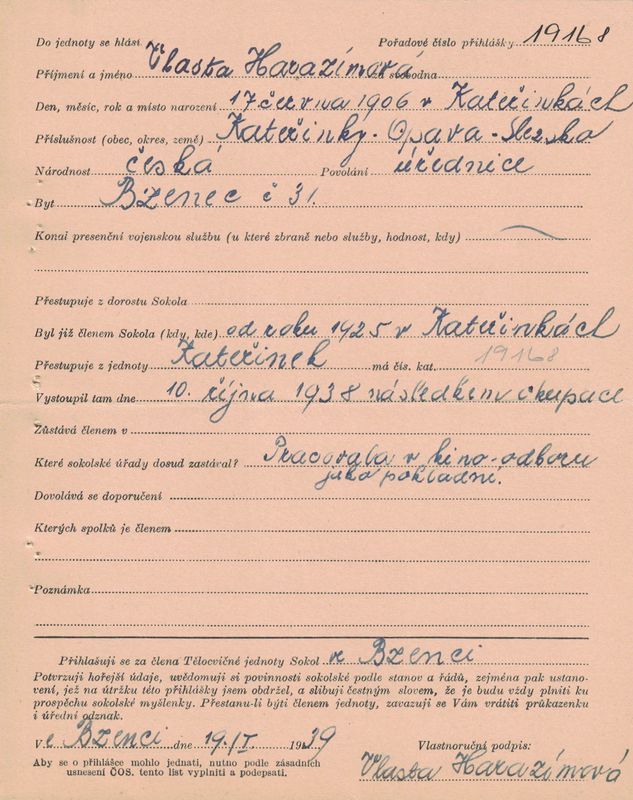 Do jednoty se hlásí Pořadové číslo přihlášky 19168
Příjmení a jméno Vlasta Harazímová svobodna
Den, měsíc, rok a místo narození 17 června 1906 v Kateřinkách
Příslušnost (obec, okres, země) Kateřinky - Opava - Slezsko
Národnost česká Povolání úřednice
Byt Bzenec č 31.
Konal presenční vojenskou službu (u které zbraně nebo služby, hodnost, kdy)
Přestupuje z dorostu Sokola
Byl již členem Sokola (kdy, kde) od roku 1925 v Kateřinkách
Přestupuje z jednoty Kateřinek má čís. kat. 19168
Vystoupil tam dne 10. října 1938 následkem okupace
Zůstává členem v
Které sokolské úřady dosud zastával? Pracovala v kino-odboru
jako pokladní.
Dovolává se doporučení
Kterých spolků je členem
Poznámka
Přihlašuji se za člena Tělocvičné jednoty Sokol ve Bzenci
Potvrzuji hořejší údaje, uvědomuji si povinnosti sokolské podle stanov a řádů, zejména pak ustano-
vení, jež na útržku této přihlášky jsem obdržel, a slibuji čestným slovem, že je budu vždy plniti ku
prospěchu sokolské myšlenky. Přestanu-li býti členem jednoty, zavazuji se Vám vrátiti průkazenku
i úřední odznak.
Ve Bzenci dne 19./I. 1939 Vlastnoruční podpis:
Aby se o přihlášce mohlo jednati, nutno podle zásadních
usnesení ČOS. tento list vyplniti a podepsati.
Vlasta Harazímová